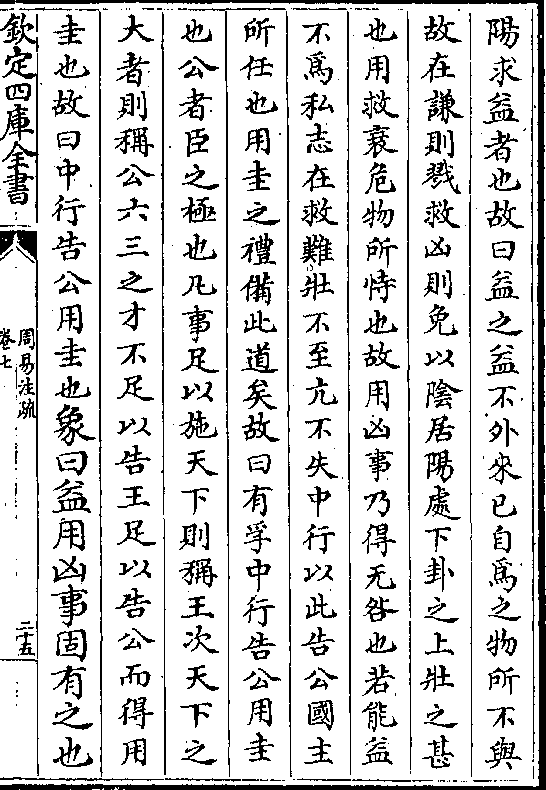 陽求益者也故曰益之益不外來已自為之物所不與
故在謙則戮救凶則免以陰居陽處下卦之上壯之甚
也用救衰危物所恃也故用凶事乃得无咎也若能益
不為私志在救難壯不至亢不失中行以此告公國主
所任也用圭之禮備此道矣故曰有孚中行告公用圭
也公者臣之極也凡事足以施天下則稱王次天下之
大者則稱公六三之才不足以告王足以告公而得用
圭也故曰中行告公用圭也象曰益用凶事固有之也
欽定四庫全書
周易注疏
卷七
二十五